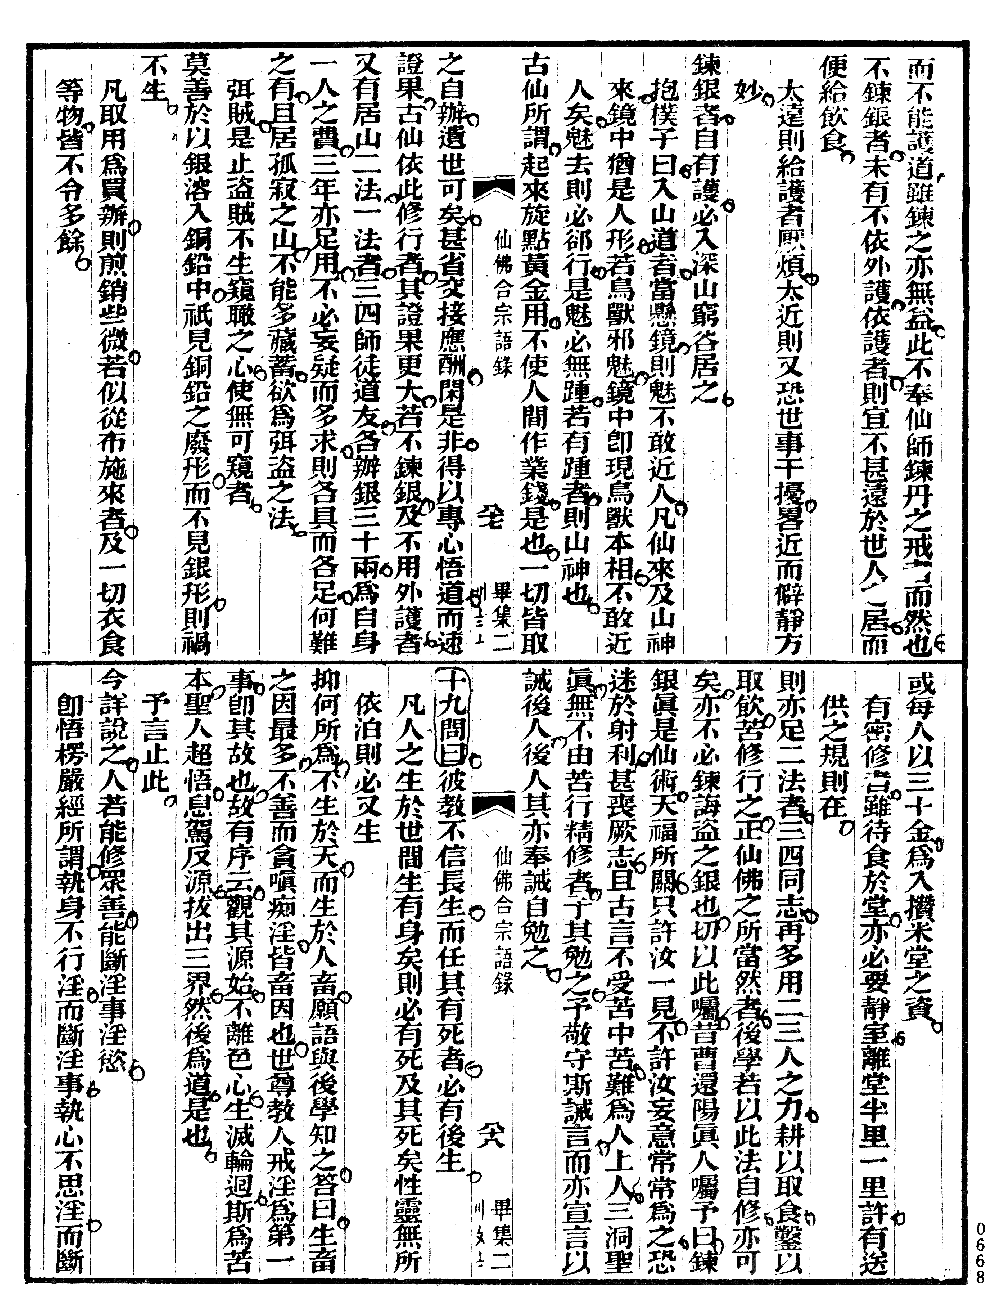 而不能護道雖鍊之亦無益此不奉仙師鍊丹之戒言而然也
不鍊銀者未有不依外護依護者則宜不甚遠於世人之居而
便給飲食
太遠則給護者厭煩太近則又恐世事干擾畧近而僻靜方
妙
鍊銀者自有護必入深山窮谷居之
抱樸子曰入山道者當懸鏡則魅不敢近人凡仙來及山神
來鏡中猶是人形若鳥獸邪魅鏡中卽現鳥獸本相不敢近
人矣魅去則必郤行是魅必無踵若有踵者則山神也
古仙所謂起來旋點黃金用不使人間作業錢是也一切皆取
仙佛合宗語錄
畢集二
之自辦遁世可矣甚省交接應酬閑是非得以專心悟道而速
證果古仙依此修行者其證果更大若不鍊銀及不用外護者
又有居山二法一法者三四師徒道友各辦銀三十兩爲自身
一人之費三年亦足用不必妄疑而多求則各具而各足何難
之有且居孤寂之山不能多藏蓄欲爲弭盜之法
弭賊是止盜賊不生窺瞰之心使無可窺者
莫善於以銀溶入銅鉛中祇見銅鉛之廢形而不見銀形則禍
不生
凡取用爲買辦則煎銷些微若似從布施來者及一切衣食
等物皆不令多餘
或每人以三十金爲入攢米堂之資
有密修者雖待食於堂亦必要靜室離堂半里一里許有送
供之規則在
則亦足二法者三四同志再多用二三人之力耕以取食鑿以
取飲苦修行之正仙佛之所當然者後學若以此法自修亦可
矣亦不必鍊誨盜之銀也切以此囑昔曹還陽眞人囑予曰鍊
銀眞是仙術天福所關只許汝一見不許汝妄意常常爲之恐
迷於射利甚喪厥志且古言不受苦中苦難爲人上人三洞聖
眞無不由苦行精修者子其勉之予敬守斯誡言而亦宣言以
誡後人後人其亦奉誡自勉之
仙佛合宗語錄
六八
畢集二
十九問曰彼教不信長生而任其有死者必有後生
凡人之生於世間生有身矣則必有死及其死矣性靈無所
依泊則必又生
抑何所爲不生於天而生於人畜願語與後學知之答曰生畜
之因最多不善而貪嗔痴淫皆畜因也世尊教人戒淫爲第一
事卽其故也故有序云觀其源始不離色心生滅輪迴斯爲苦
本聖人超悟息駕反源拔出三界然後爲道是也
予言止此
今詳說之人若能修眾善能斷淫事淫慾
卽悟楞嚴經所謂執身不行淫而斷淫事執心不思淫而斷
0668